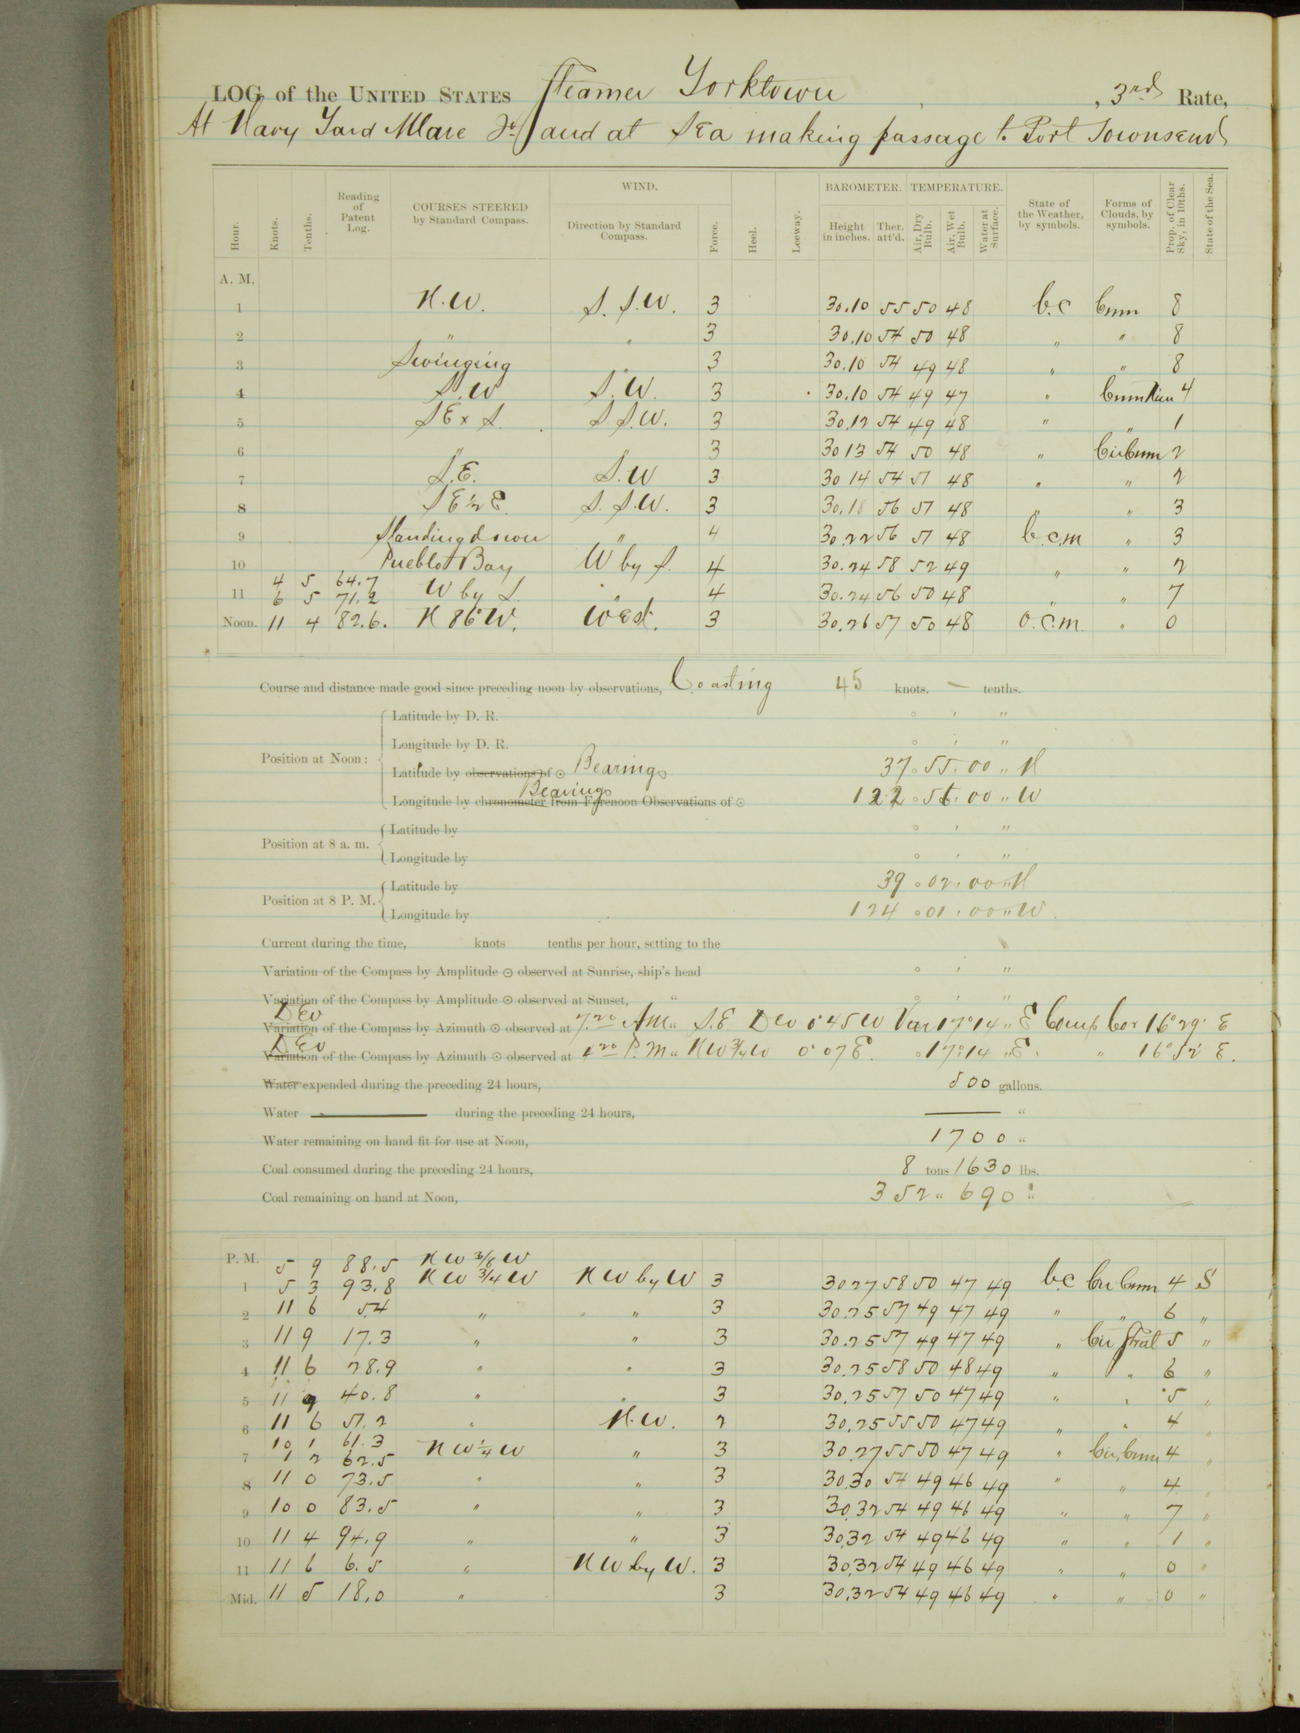 LOG of the UNITED STATES Steamer Yorktown , 3rd Rate,
At Navy Yard Mare Id. and at Sea making passage to Port Townsend
Hour. Knots. Tenths. Reading of Patent Log. COURSES STEERED by Standard Compass. WIND. Direction by Standard Compass. Force. Heel. Leeway. BAROMETER. Height in inches. Ther. att'd. TEMPERATURE. Air, Dry Bulb. Air, Wet Bulb. Water at Surface. State of the Weather, by symbols. Forms of Clouds, by symbols. Prop. of Clear Sky, in 10ths. State of the Sea.
A. M.
1 N.W. S. S.W. 3 30.10 55 50 48 b.c Cum 8
2 " " 3 30.10 54 50 48 " " 8
3 Swinging " 3 30.10 54 49 48 " " 8
4 S.W S.W. 3 30.10 54 49 47 " Cum Nim 4
5 SE x S. S S.W. 3 30.12 54 49 48 " " 1
6 " " 3 30 13 54 50 48 " Cir Cum 2
7 S.E. S.W 3 30 14 54 51 48 " " 2
8 SE ½ E. S. S.W. 3 30.18 56 51 48 " " 3
9 Standing down " 4 30.22 56 51 48 b.c.m " 3
10 Pueblo Bay W by S. 4 30.24 58 52 49 " " 2
4 5 64.7
11 6 5 71.2 W by S. " 4 30.24 56 50 48 " " 7
Noon. 11 4 82.6. N 86°W. West. 3 30.26 57 50 48 O.C.m. " 0
Course and distance made good since preceding noon by observations, Coasting 45 knots. — tenths.
Latitude by D. R. ° ' "
Longitude by D. R. ° ' "
Position at Noon: Latitude by observations of ⊙ Bearings 37 ° 55 ' 00 " N
Longitude by chronometer from Forenoon Observations of ⊙ Bearings 122 ° 56 ' 00 " W
Position at 8 a. m. Latitude by ° ' "
Longitude by ° ' "
Position at 8 P. M. Latitude by 39 ° 02 ' 00 " N
Longitude by 124 ° 01 ' 00 " W.
Current during the time, knots tenths per hour, setting to the
Variation of the Compass by Amplitude ⊙ observed at Sunrise, ship's head ° ' "
Variation of the Compass by Amplitude ⊙ observed at Sunset, " ° ' "
Dev
Variation of the Compass by Azimuth ⊙ observed at 7.20 AM " S.E Dev 0° 45 W Var 17° 14 " E Comp Cor 16° 29' E
Dev
Variation of the Compass by Azimuth ⊙ observed at 4 20 P. M " NW ¾ W 0° 07 E. ° 17° 14 " E. " 16° 52' E.
Water expended during the preceding 24 hours, 500 gallons.
Water during the preceding 24 hours, "
Water remaining on hand fit for use at Noon, 1700 "
Coal consumed during the preceding 24 hours, 8 tons 1630 lbs.
Coal remaining on hand at Noon, 352 " 690 "
P. M. 5 9 88.5 NW 3/8 W
1 5 3 93.8 NW ¾ W NW by W 3 30 27 58 50 47 49 b.c Cir Cum 4 S
2 11 6 5.4 " " 3 30.25 57 49 47 49 " " 6 "
3 11 9 17.3 " " 3 30.25 57 49 47 49 " Cir Strat 5 "
4 11 6 28.9 " " 3 30.25 58 50 48 49 " " 6 "
5 11 9 40.8 " " 3 30.25 57 50 47 49 " " 5 "
6 11 6 51.2 " N.W. 2 30.25 55 50 47 49 " " 4 "
10 1 61.3
7 1 2 62.5 NW ¼ W " 3 30.27 55 50 47 49 " Cir, Cum 4 "
8 11 0 73.5 " " 3 30.30 54 49 46 49 " " 4 "
9 10 0 83.5 " " 3 30.32 54 49 46 49 " " 7 "
10 11 4 94.9 " " 3 30.32 54 49 46 49 " " 1 "
11 11 6 6.5 " NW by W. 3 30.32 54 49 46 49 " " 0 "
Mid. 11 5 18.0 " 3 30.32 54 49 46 49 " " 0 "